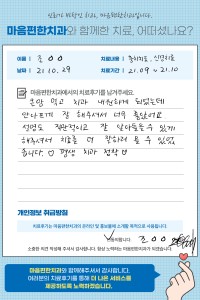 진료가 따뜻한 치과, 마음편한치과입니다.
마음편한치과와 함께한 치료, 어떠셨나요?
이름 / 조 O O
치료내용 / 충치치료, 신경치료
날짜 / 21. 10. 29
치료기간 / 21. 09 ~ 21. 10
마음편한치과에서의 치료후기를 남겨주세요.
큰맘 먹고 치과 내원하게 되었는데
안아프게 잘 해주셔서 너무 좋았어요
설명도 직관적이고 잘 알아들을 수 있게
해주셔서 치료를 더 잘하려 올 수 있었
습니다. ♡ 평생 치과 정착
개인정보 취급방침
치료후기는 마음편한치과의 온라인 및 홍보물에 소개될 목적으로 사용됩니다.
동의합니다. 조 O O
소중한 의견 작성해 주셔서 감사합니다. 항상 노력하는 마음편한치과가 되겠습니다.
마음편한치과와 함께해주셔서 감사합니다.
여러분의 치료후기를 통해 더 나은 서비스를
제공하도록 노력하겠습니다.